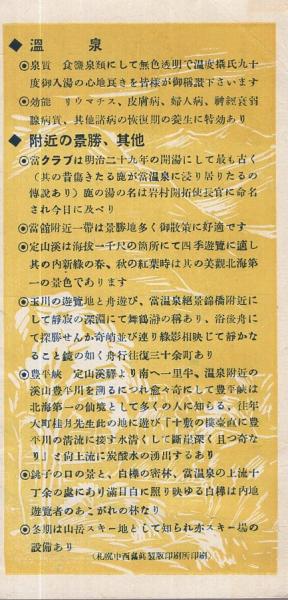 ◆ 溫泉
◉泉質 食鹽泉類にして無色透明で溫度攝氏九十
度御入湯の心地良きを皆樣が御稱讃下さいます
◉効能 リウマチス、皮膚病、婦人病、神經衰弱
腺病質、其他諸病の恢復期の養生に特効あり
◆ 附近の景勝、其他
◉當クラブは明治二十九年の開湯にして最も古く
(其の昔傷きたる鹿が當溫泉に浸り居りたるの
傳說あり)鹿の湯の名は岩村開拓使長官に命名
され今日に及べり
◉當館附近一帶は景勝地多く御散策に好適です
◉定山溪は海拔一千尺の箇所にて四季遊覽に適し
其の內新綠の春、秋の紅葉時は其の美觀北海第
一の景色であります
◉玉川の遊覽地と舟遊び、當溫泉絕景錦橋附近に
して靜寂の深淵にて舞鶴潭の稱あり、浴後舟に
て探勝せんか奇峭並び連り綠影相映じて靜かな
ること鏡の如く舟行往復三十余町あり
◉豊平峽 定山溪驛より南へ一里半、溫泉附近の
溪山豊平川を溯るにつれ愈々奇にして豊平峽は
北海第一の仙境として多くの人に知らる、往年
大町桂月先生此の地に遊び「十敷の樓臺直に豊
平川の淸流に接す水淸くして斷崖深く且つ奇な
り」と向上流に炭酸水の湧出するあり
◉銚子の口の景と、白樺の密林、當溫泉の上流十
丁余の處にあり滿目白に照り映ゆる白樺は內地
遊覽者のあこがれの林なり
◉冬期は山岳スキー地として知られ亦スキー場の
設備あり
(札幌中西寫眞製版印刷所印刷)